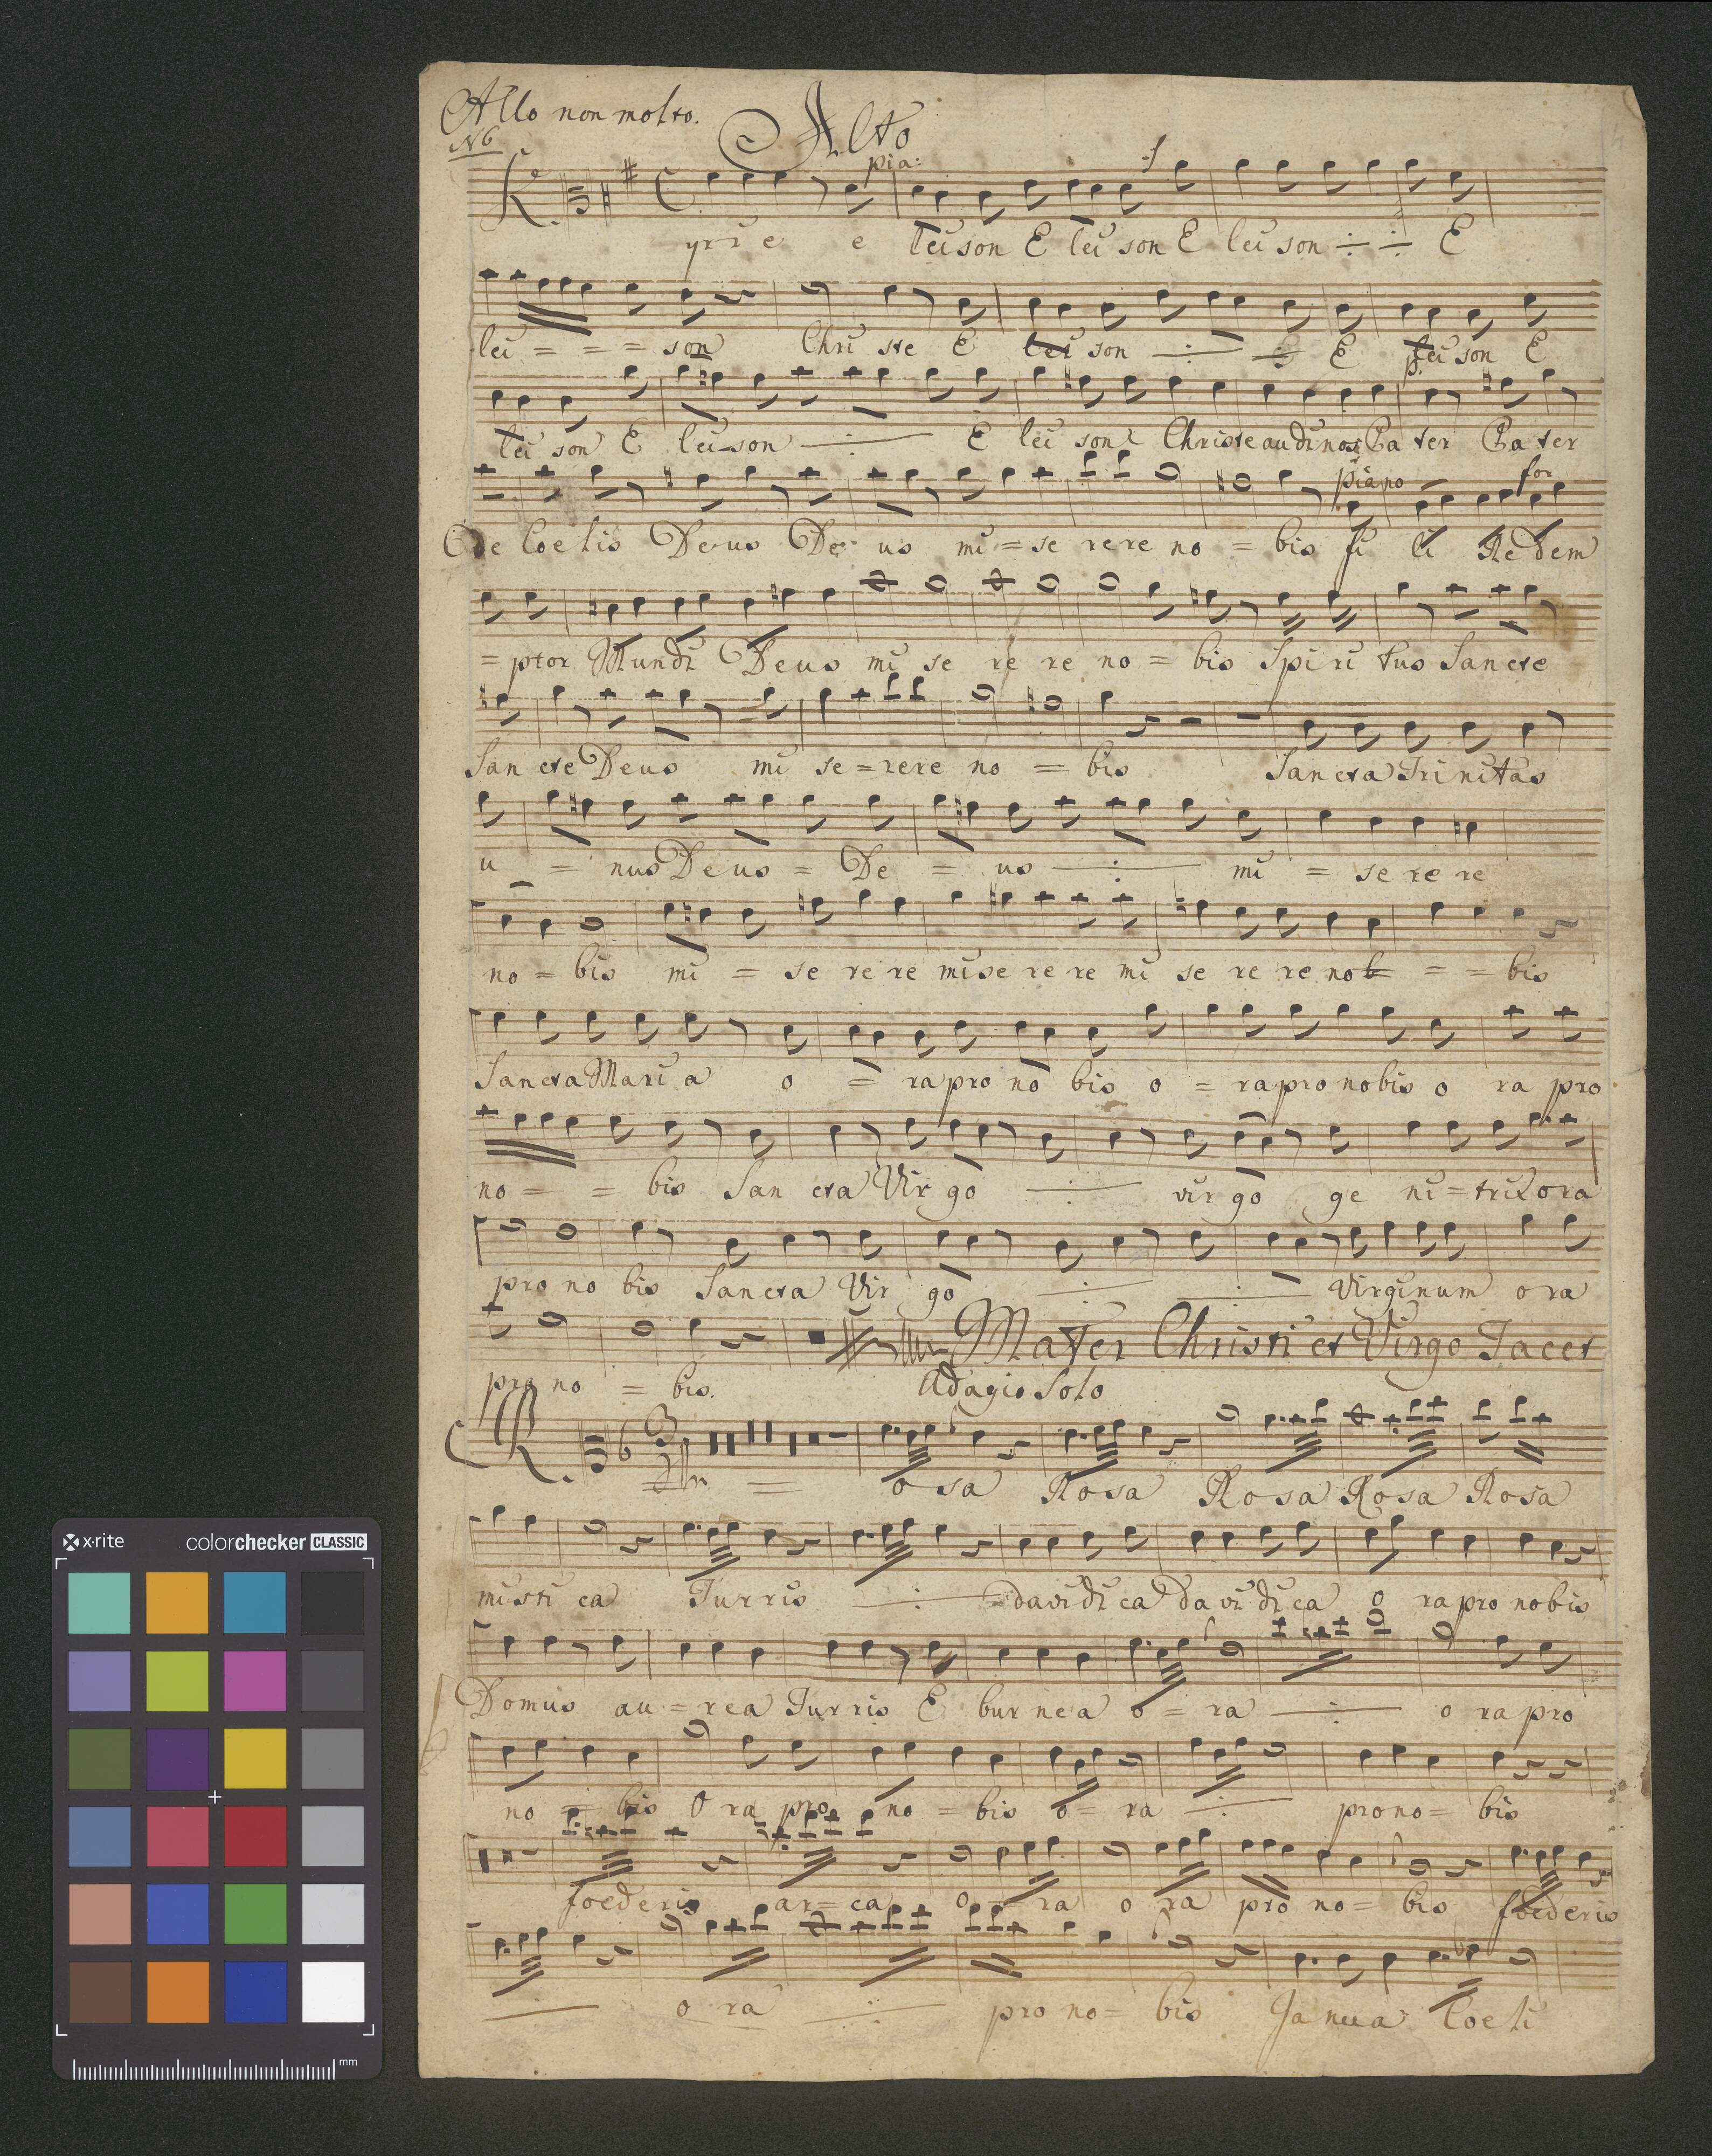 Allo non molto.
Alto
N6
pia:
Kyrie e leison E lei son E lei son ÷ ÷ E
lei = = = son Chri ste E lei son ÷ E lei son E
lei son E lei-son ÷ E lei son Christe audi nos Pa ter Pa ter
piano for
De Coe lis De us De us mi = se rere no = bis fi li Re dem
= ptor Mundi Deus mi se re re no = bis Spi ri tus Sancte
San cte Deus mi se = rere no = bis Sancta Trinitas
u = nus Deus = De = us ÷ mi = se re re
no = bis mi = se re re mise re re mi se re re no = = bis
Sancta Mari a o = ra pro no bis o = ra pro nobis o ra pro
no = = bis San cta Vir go ÷ vir go ge ni = trix ora
pro no bis Sancta Vir go ÷ ÷ Virginum o ra
Mater Christi et Virgo Tacet
pro no = bis. Adagio Solo
R = o sa Rosa Rosa Rosa Rosa
misti ca Turris ÷ davidi ca da vi di ca o ra pro nobis
Domus au = rea Turris E bur nea o = ra ÷ o ra pro
no = bis O ra pro no = bis o = ra ÷ pro no = bis
foederis ar = ca o = ra o ra pro no = bis foederis
o ra ÷ pro no = bis Janua Coeli
x·rite
colorchecker CLASSIC
mm